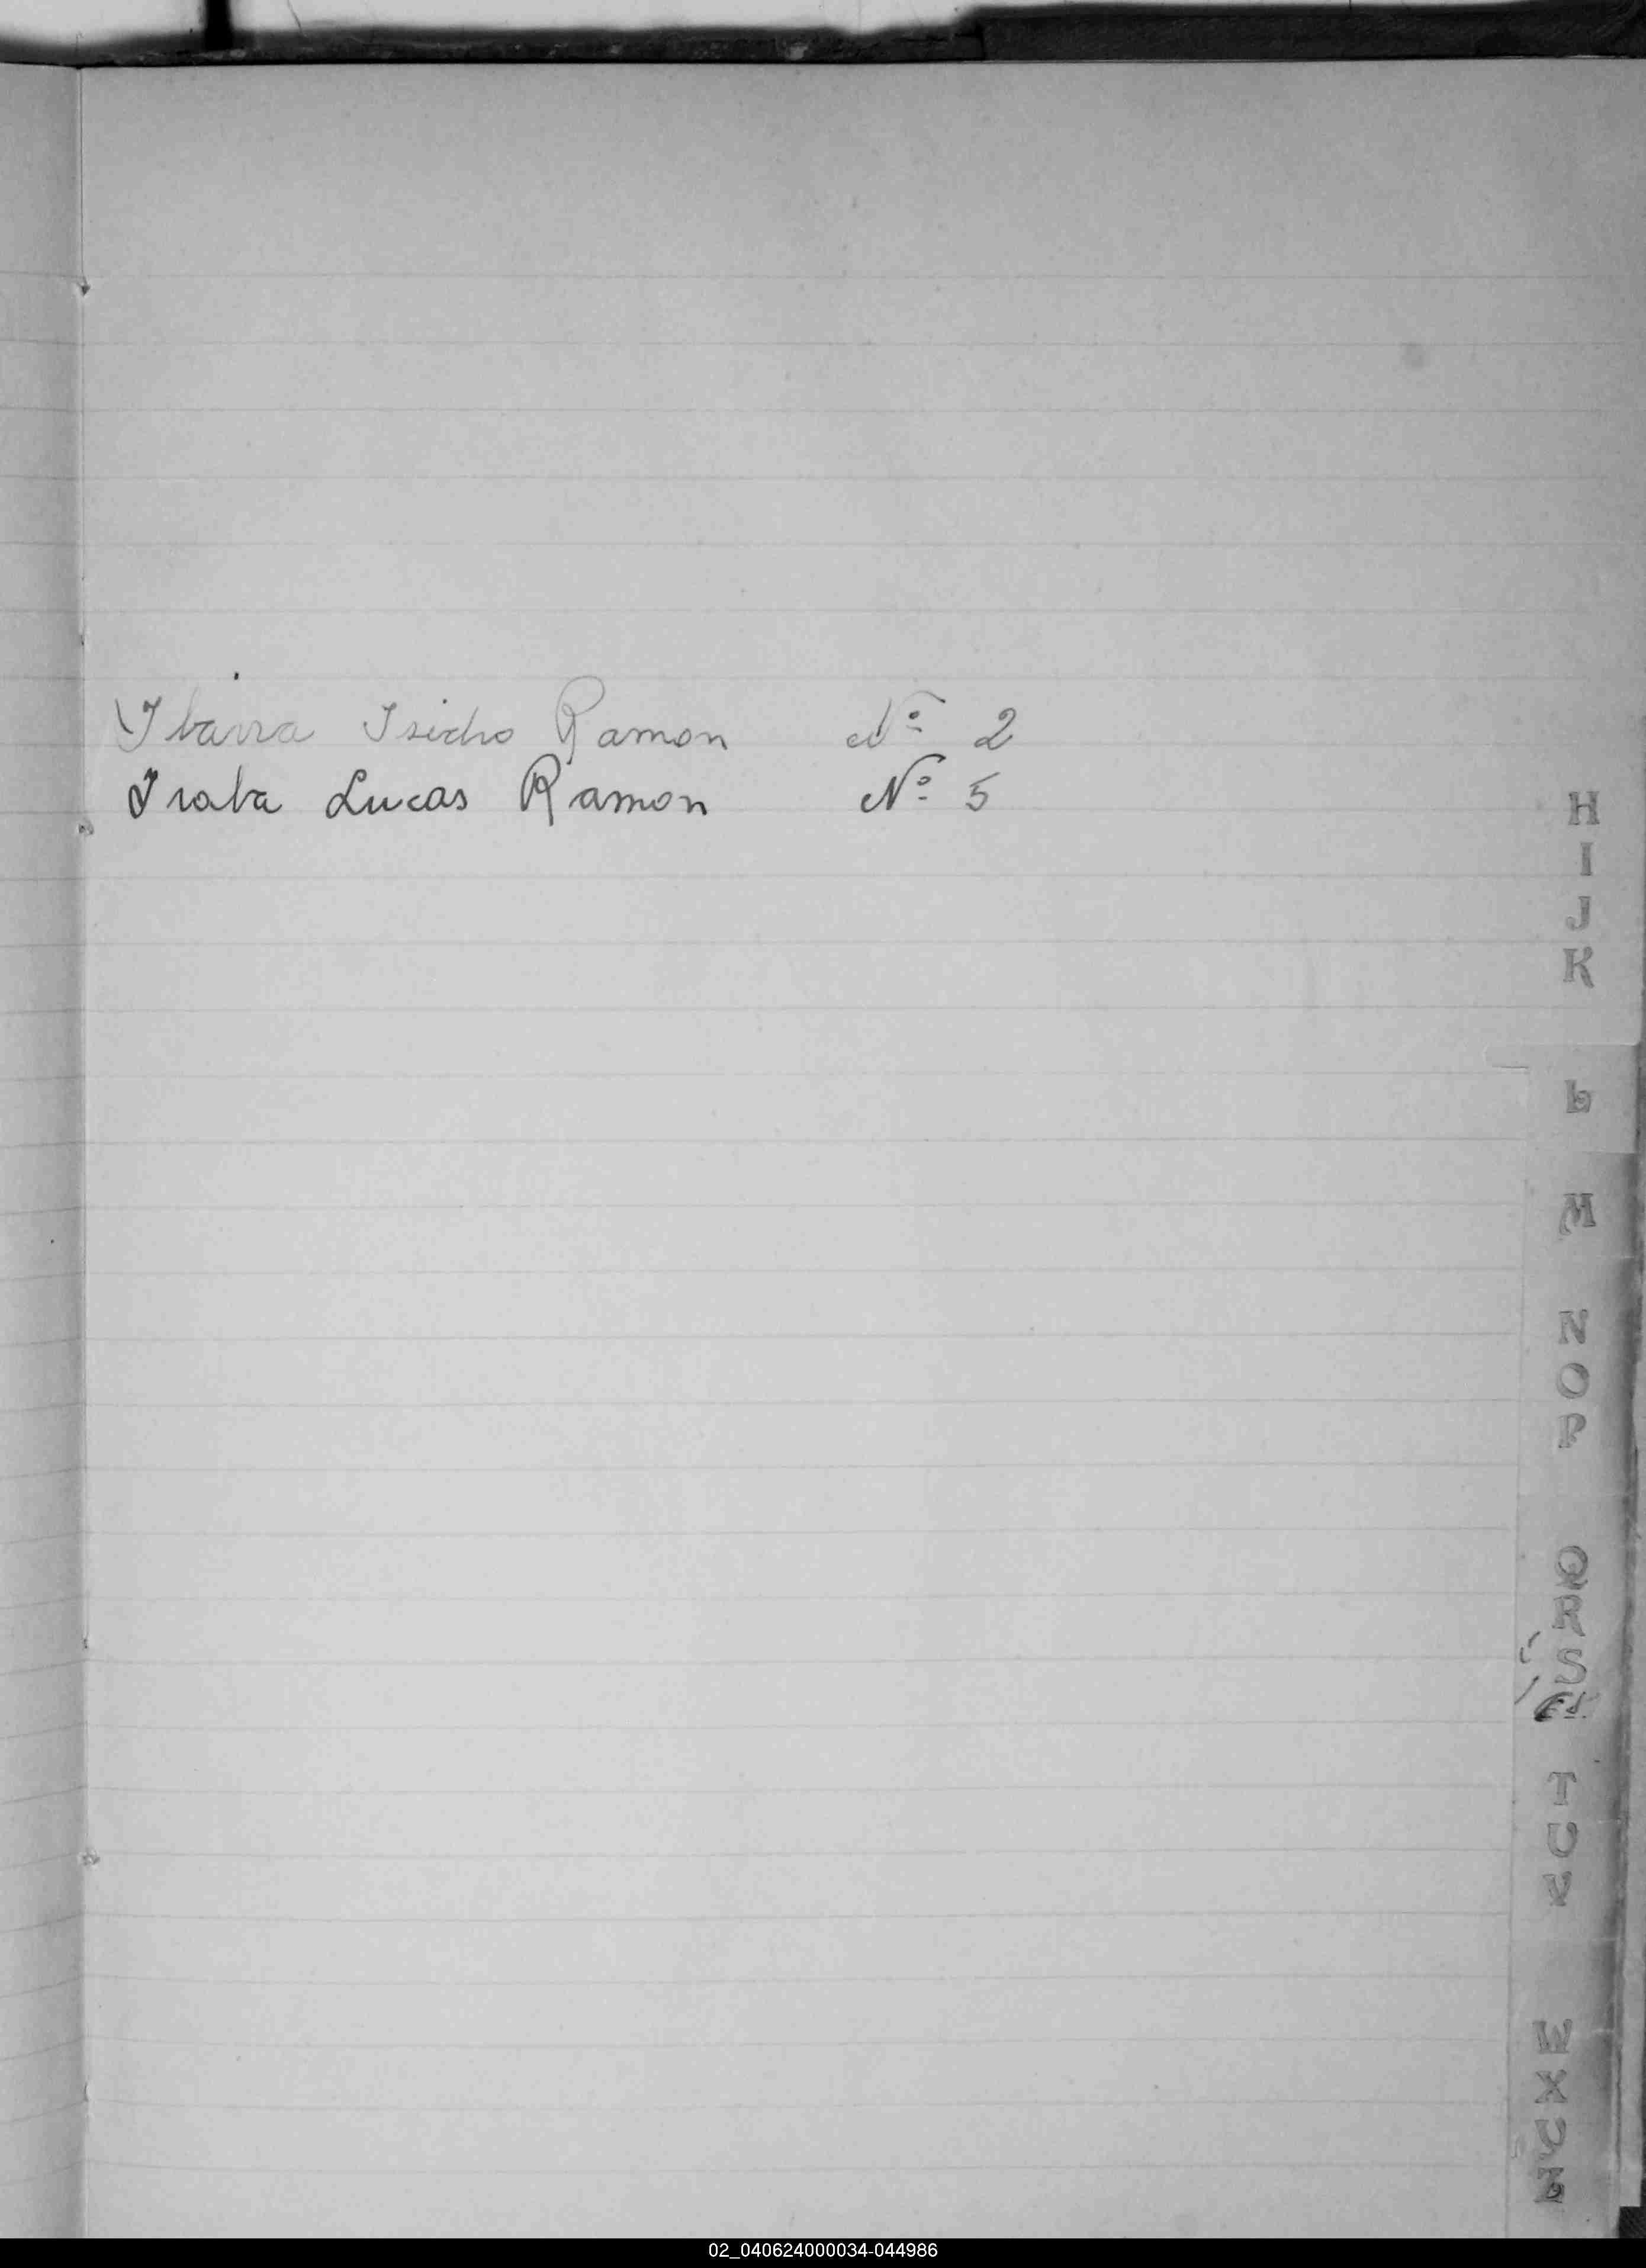 Ybarra Isidro Ramon Nº 2
Iraba Lucas Ramon Nº 5
H
I
J
K
L
M
N
O
P
Q
R
S
T
U
V
W
X
Y
Z
02_040624000034-044986